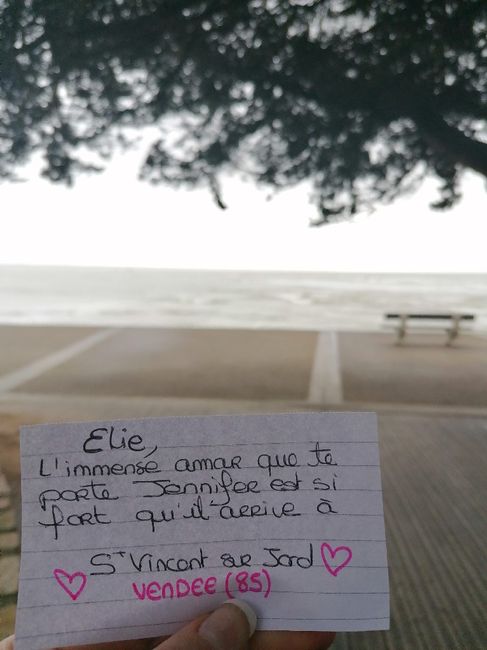 Elie,
L'immense amar que te
porte Jennifer est si
fort qu'il arrive à
St Vincent sur Jard
VENDEE (85)